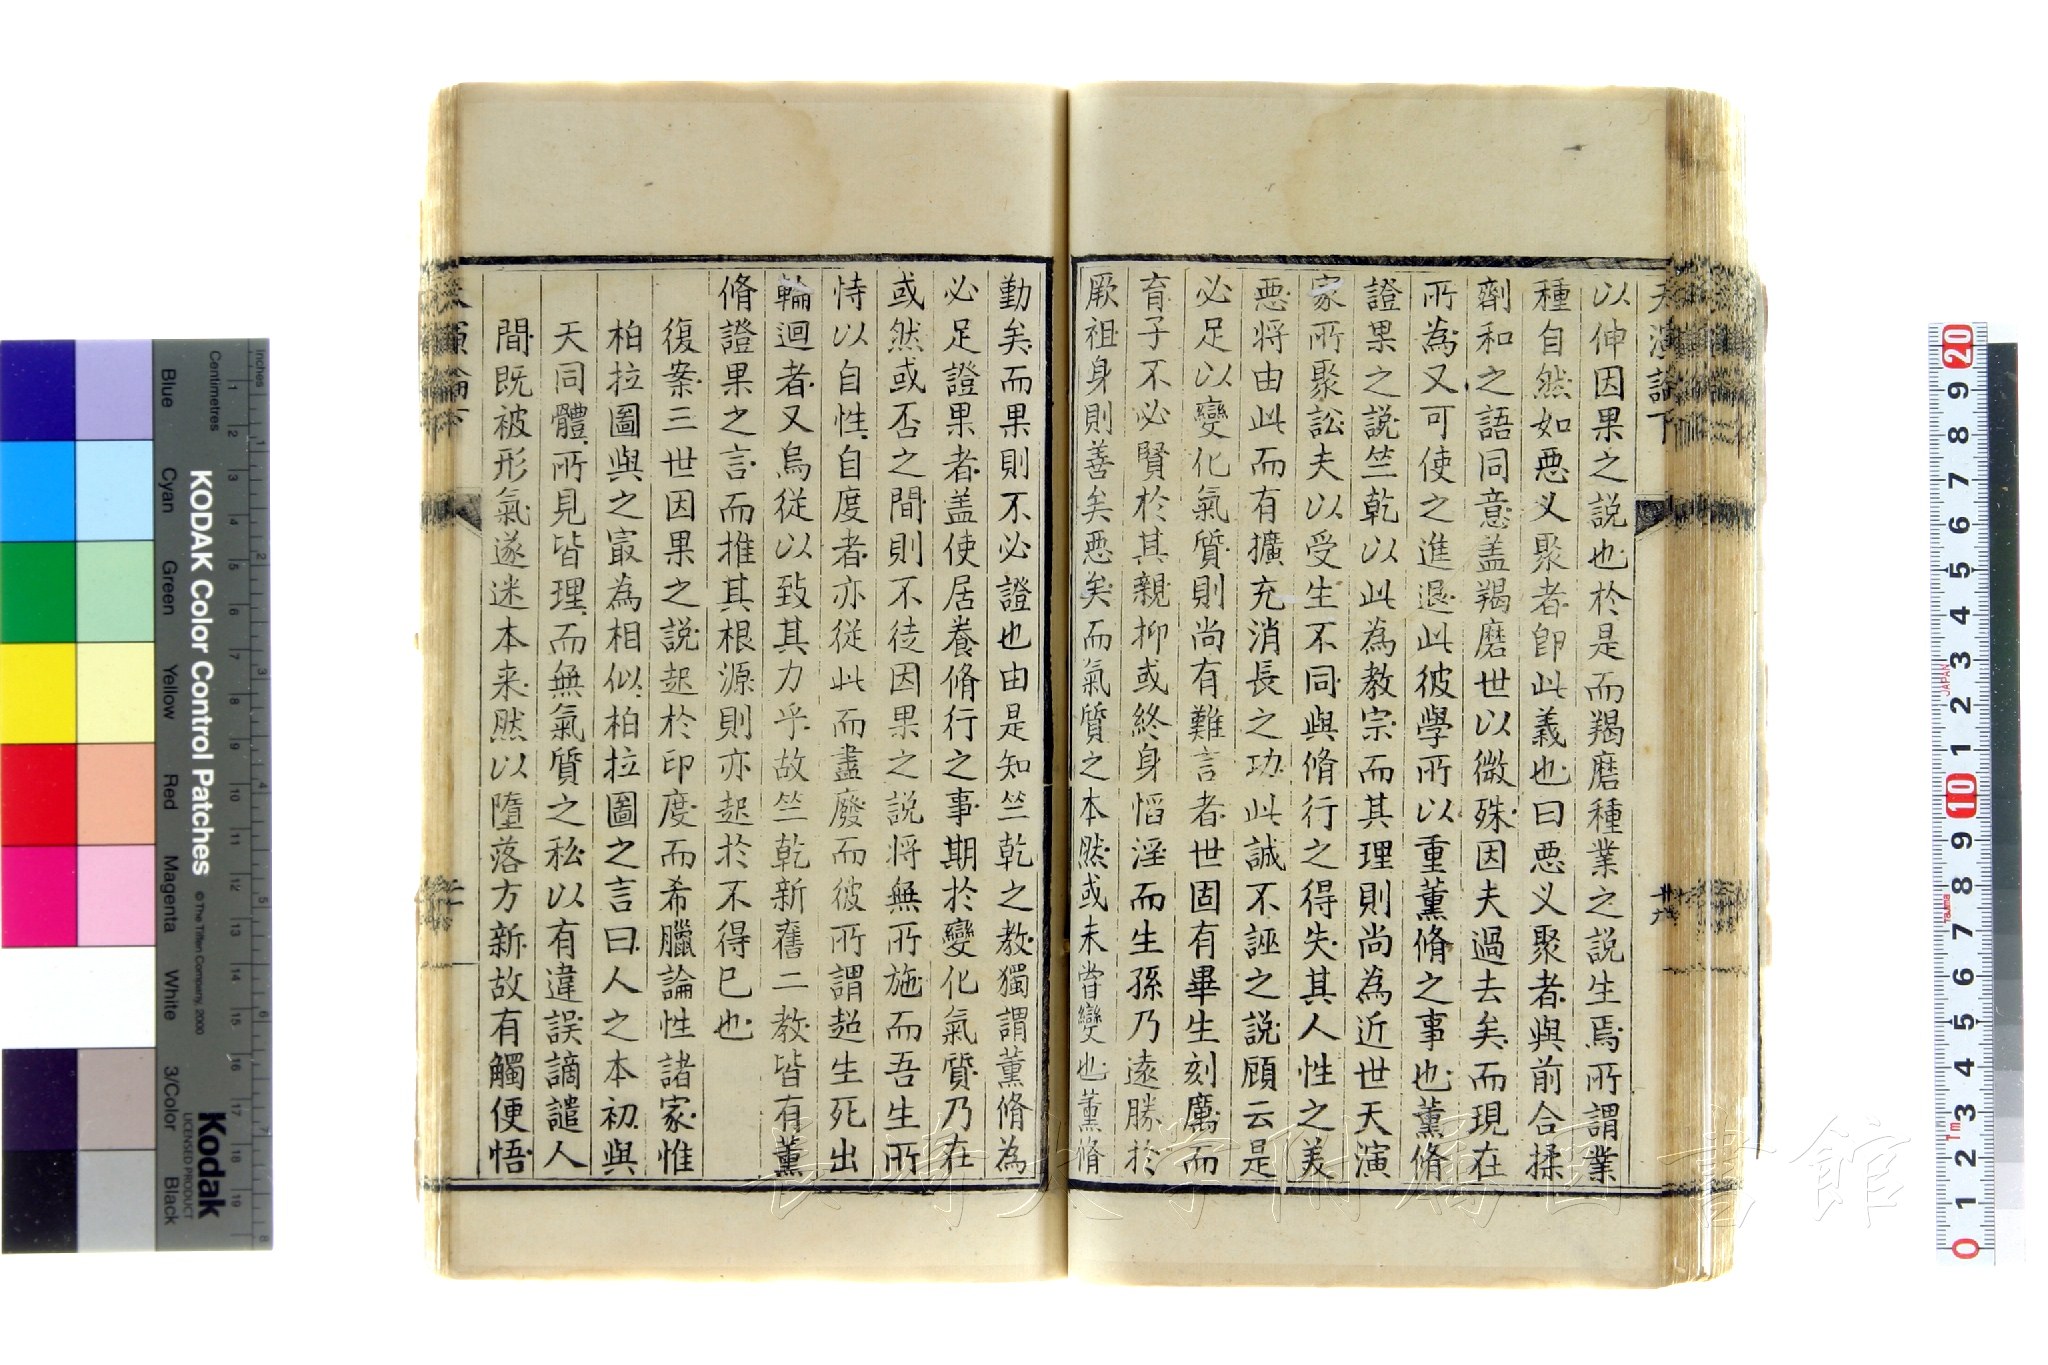 天演論下
廿九
以伸因果之說也於是而羯磨種業之說生焉所謂業
種自然如惡义聚者卽此義也曰惡义聚者與前合揉
劑和之語同意盖羯磨世以微殊因夫過去矣而現在
所為又可使之進退此彼學所以重薰脩之事也薰脩
證果之說竺乾以此為教宗而其理則尚為近世天演
家所聚訟夫以受生不同與脩行之得失其人性之美
惡將由此而有擴充消長之功此誠不誣之說顧云是
必足以變化氣質則尚有難言者世固有畢生刻厲而
育子不必賢於其親抑或終身慆淫而生孫乃遠勝於
厥祖身則善矣惡矣而氣質之本然或未嘗變也薰脩
勤矣而果則不必證也由是知竺乾之教獨謂薰脩為
必足證果者盖使居養脩行之事期於變化氣質乃在
或然或否之間則不徒因果之說將無所施而吾生所
恃以自性自度者亦從此而盡廢而彼所謂超生死出
輪迴者又烏從以致其力乎故竺乾新舊二教皆有薰
脩證果之言而推其根源則亦起於不得已也
復案三世因果之說起於印度而希臘論性諸家惟
柏拉圖與之㝡為相似柏拉圖之言曰人之本初與
天同體所見皆理而無氣質之私以有違誤謫譴人
間既被形氣遂迷本来然以墮落方新故有觸便悟
天演論下
長崎大学附属図書館
KODAK Color Control Patches
© The Tiffen Company, 2000
Kodak
LICENSED PRODUCT
Inches
Centimetres
Blue
Cyan
Green
Yellow
Red
Magenta
White
3/Color
Black
1 2 3 4 5 6 7 8 9 10 11 12 13 14 15 16 17 18 19
1 2 3 4 5 6 7 8
20
9 8 7 6 5 4 3 2 1
10
9 8 7 6 5 4 3 2 1 0
JAPAN
Tajima